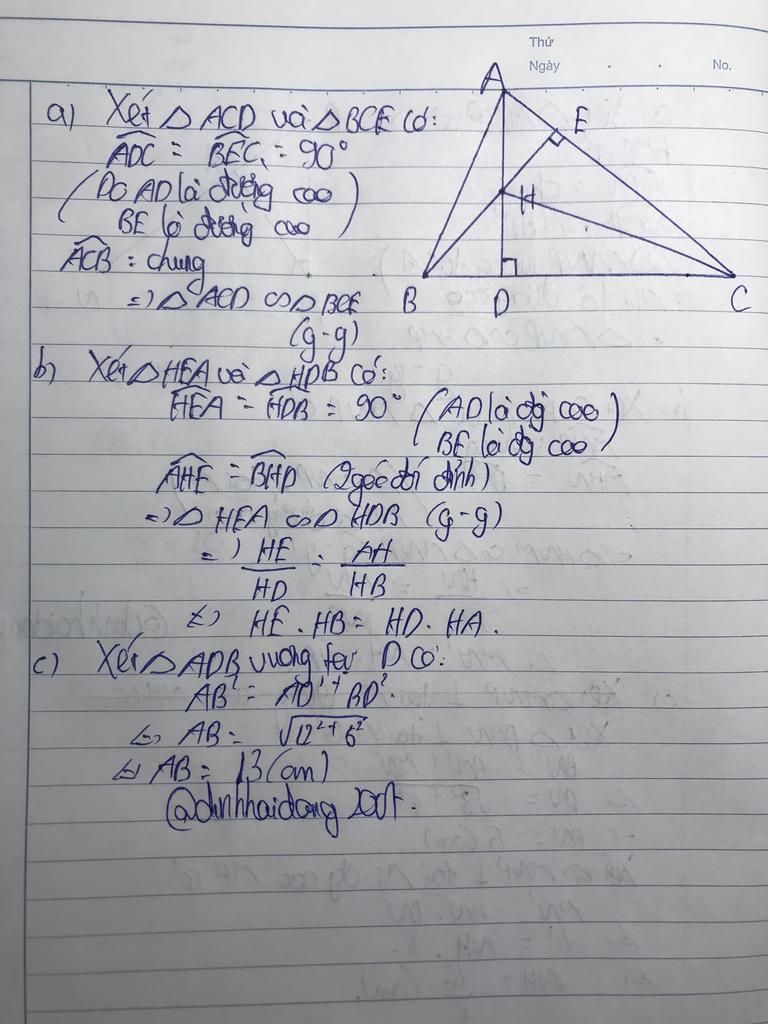 Thứ
Ngày . . No.
a) Xét △ ACD và △ BCE có:
ADC = BEC = 90°
(Do AD là đường cao
BE là đường cao)
ACB : chung
=> △ ACD ∽ △ BCE
(g-g)
b) Xét △ HEA và △ HDB có:
HEA = HDB = 90° (AD là đg cao
BE là đg cao)
AHE = BHD (2 góc đối đỉnh)
=> △ HEA ∽ △ HDB (g-g)
=> HE/HD = AH/HB
<=> HE . HB = HD . HA.
c) Xét △ ADB vuông tại D có:
AB² = AD² + BD².
<=> AB = √12² + 6²
<=> AB = 13 (cm)
@dinhhaidang
A
E
H
B D C